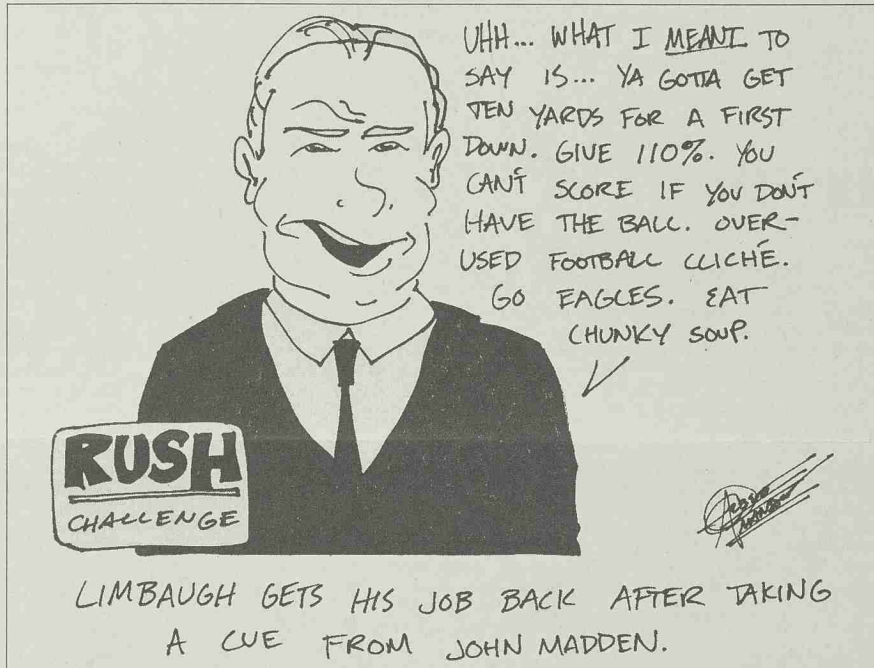 UHH... WHAT I MEANT TO
SAY IS... YA GOTTA GET
TEN YARDS FOR A FIRST
DOWN. GIVE 110%. YOU
CAN'T SCORE IF YOU DON'T
HAVE THE BALL. OVER-
USED FOOTBALL CLICHÉ.
GO EAGLES. EAT
CHUNKY SOUP.
RUSH
CHALLENGE
LIMBAUGH GETS HIS JOB BACK AFTER TAKING
A CUE FROM JOHN MADDEN.